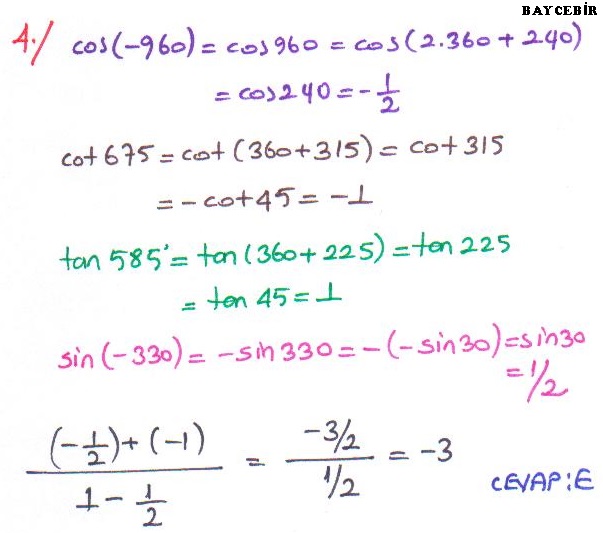 BAYCEBİR
4·/ cos(-960) = cos960 = cos(2.360 + 240)
= cos240 = -1/2
cot675 = cot(360+315) = cot315
= -cot45 = -1
tan585 = tan(360+225) = tan225
= tan45 = 1
sin(-330) = -sin330 = -(-sin30) = sin30
= 1/2
((-1/2) + (-1)) / (1 - 1/2) = (-3/2) / (1/2) = -3
CEVAP:E